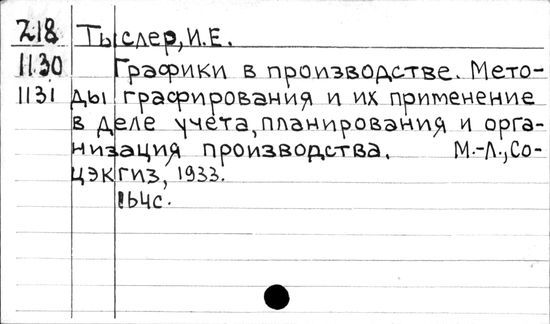 Z18 Тыслер, И.Е.
1130 Графики в производстве. Мето-
1131 ды графирования и их применение
в деле учета, планирования и орга-
низация производства. М.-Л., Со-
цэкгиз, 1933.
164с.